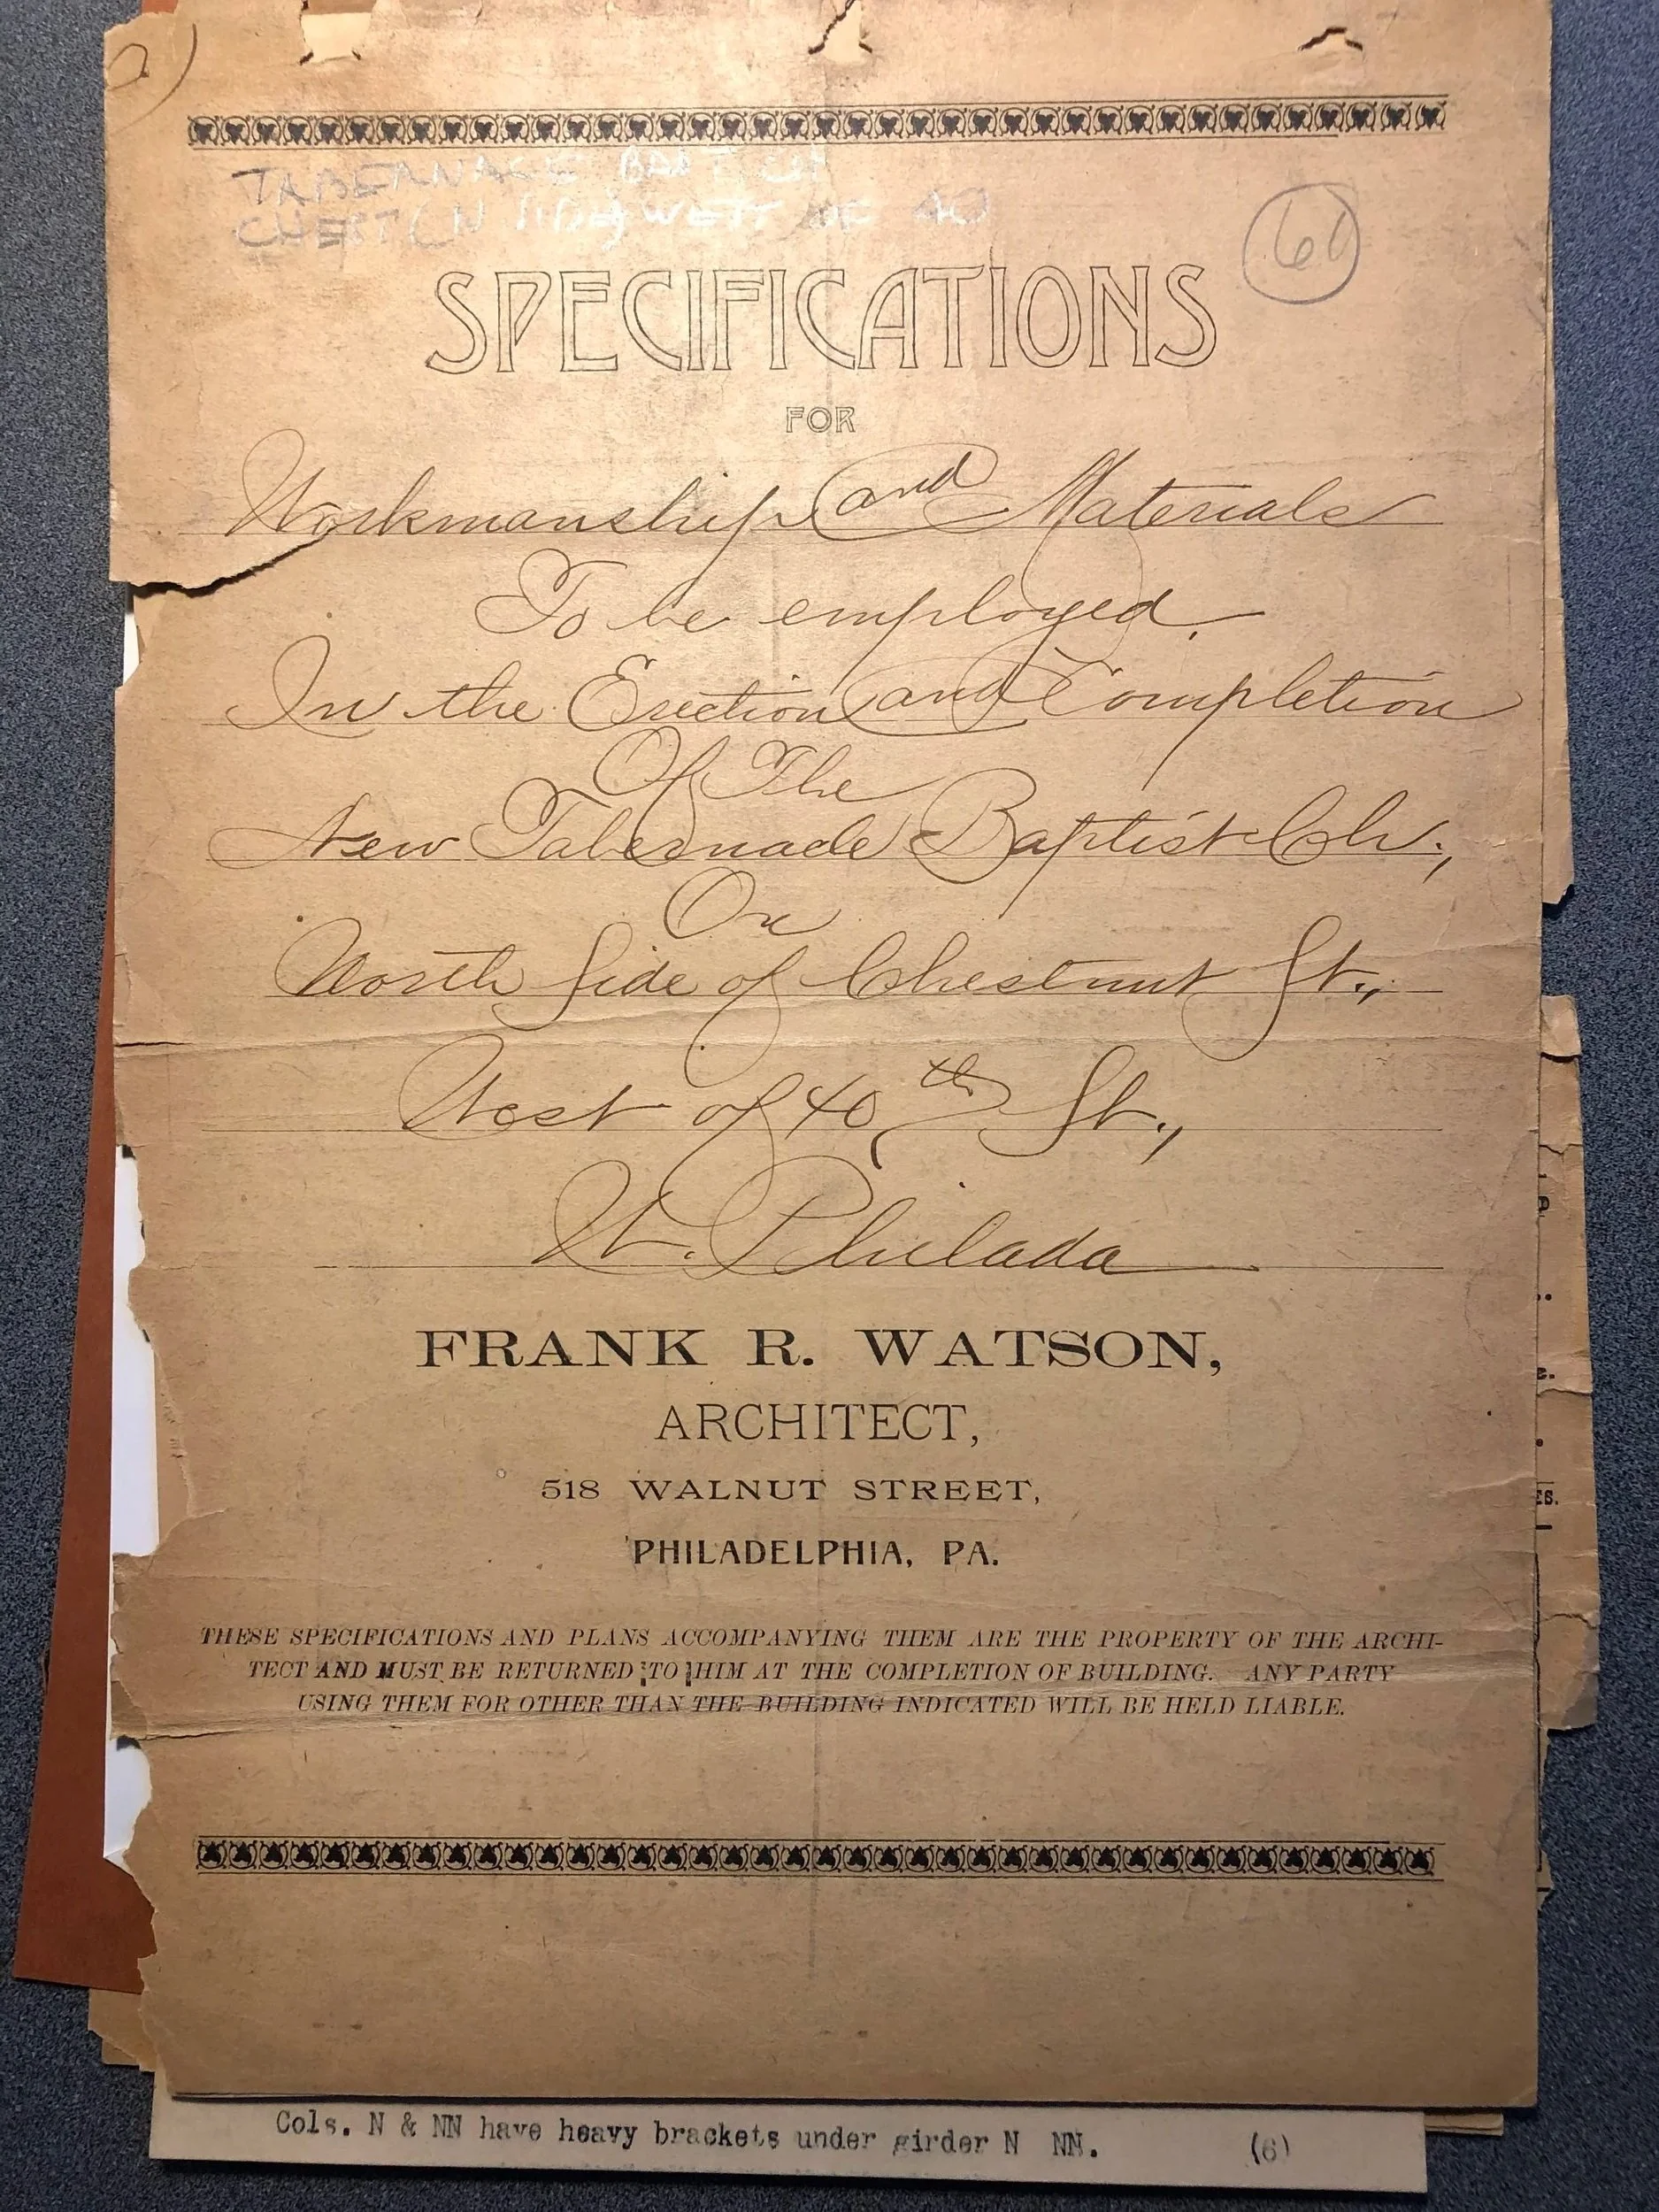 TABERNACLE BAPT CH
CHESTCN SIDE WEST OF 40
60
SPECIFICATIONS
FOR
Workmanship and Materials
To be employed.
In the Erection and Completion
Of The
New Tabernacle Baptist Ch.,
On
North Side of Chestnut St.,
West of 40th St.,
W. Philada
FRANK R. WATSON,
ARCHITECT,
518 WALNUT STREET,
PHILADELPHIA, PA.
THESE SPECIFICATIONS AND PLANS ACCOMPANYING THEM ARE THE PROPERTY OF THE ARCHI-
TECT AND MUST BE RETURNED TO HIM AT THE COMPLETION OF BUILDING. ANY PARTY
USING THEM FOR OTHER THAN THE BUILDING INDICATED WILL BE HELD LIABLE.
Cols. N & NN have heavy brackets under girder N NN. (6)